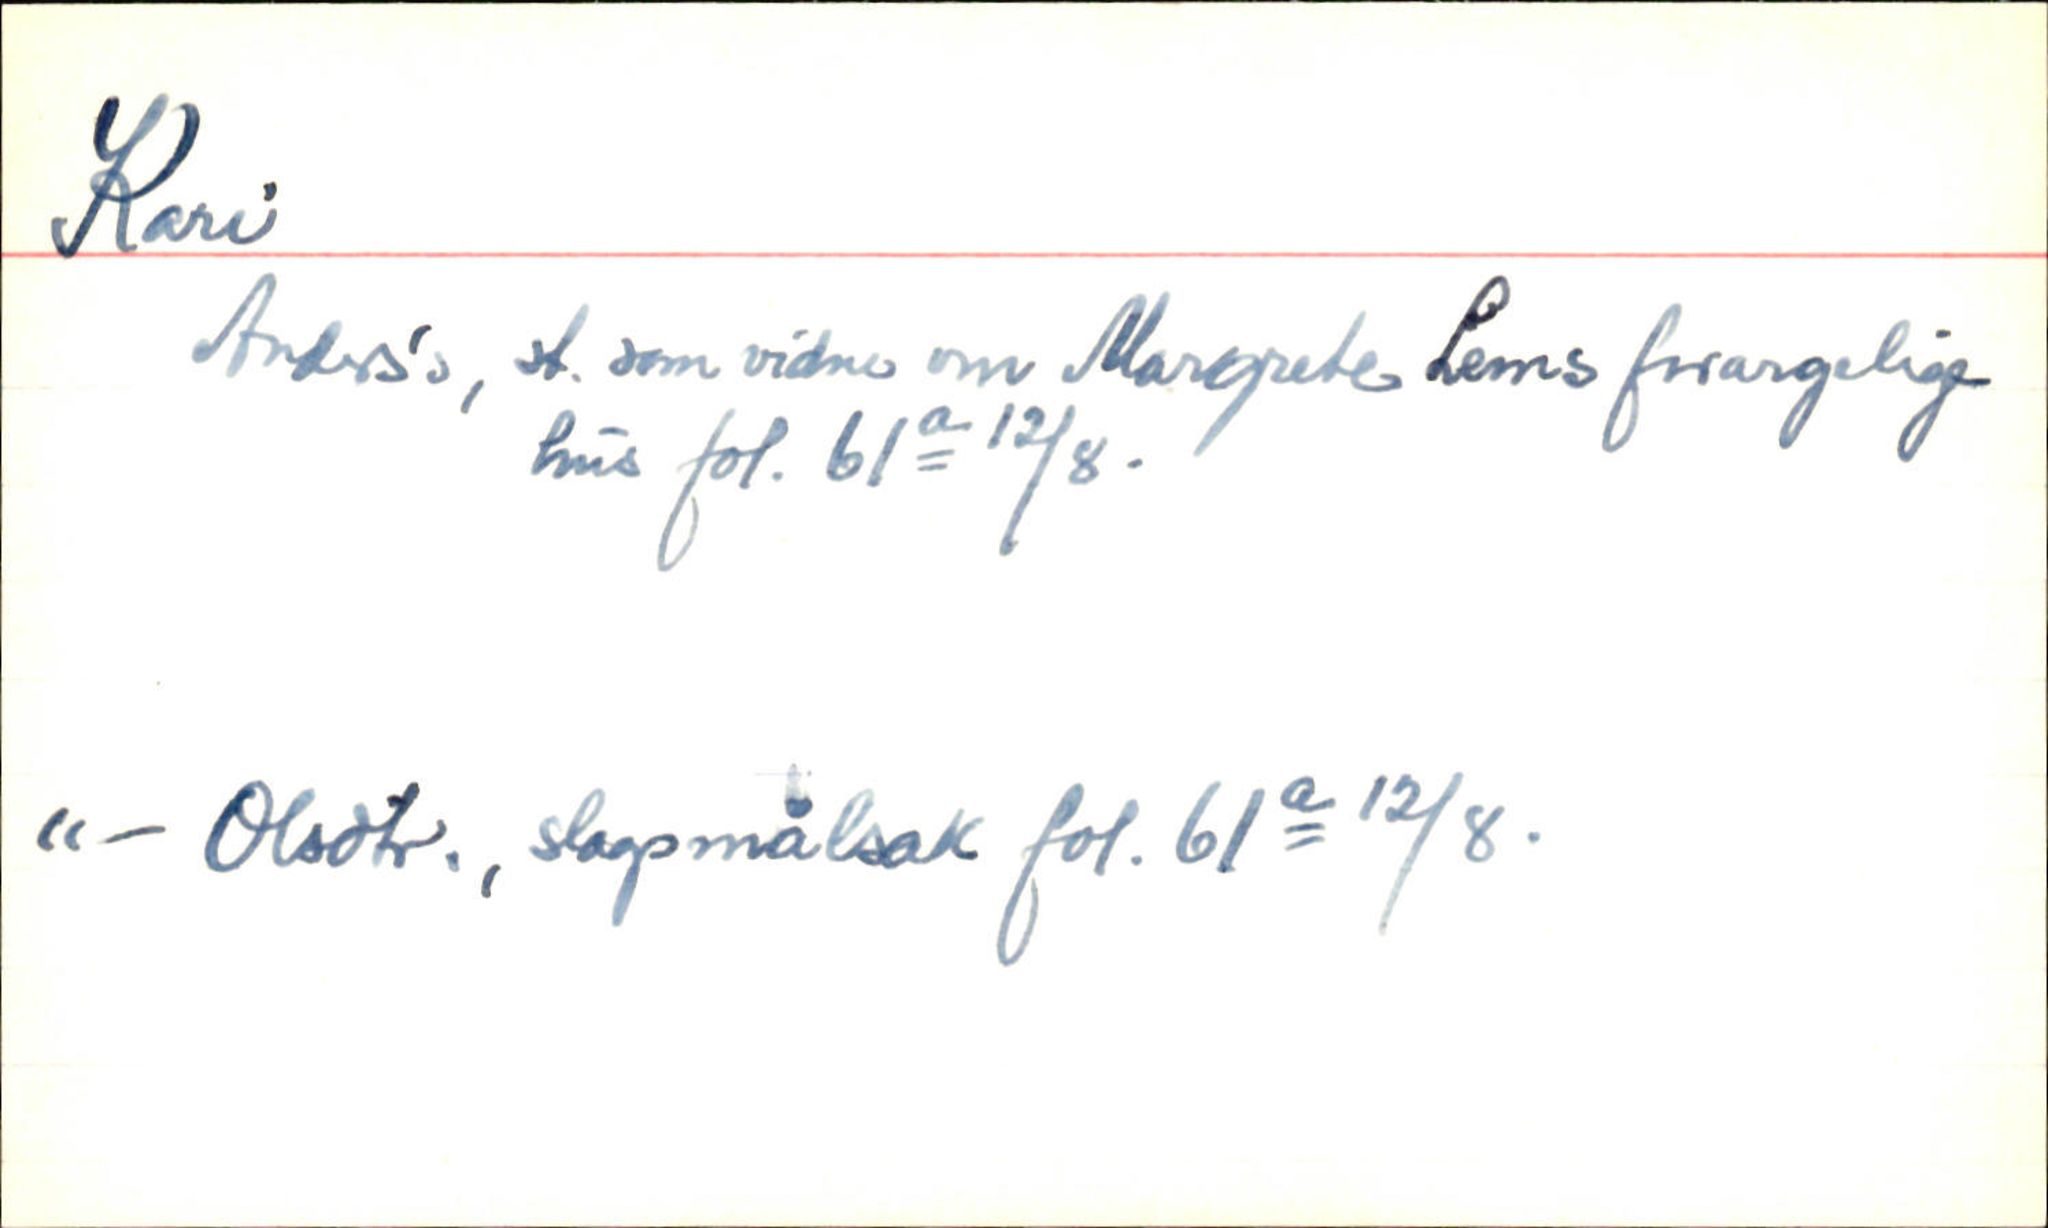 Kari
Anders's, st. som vidne om Margrete Lems forargelige
hus fol. 61a 12/8.
"- Olsdtr., slagsmålsak fol. 61a 12/8.